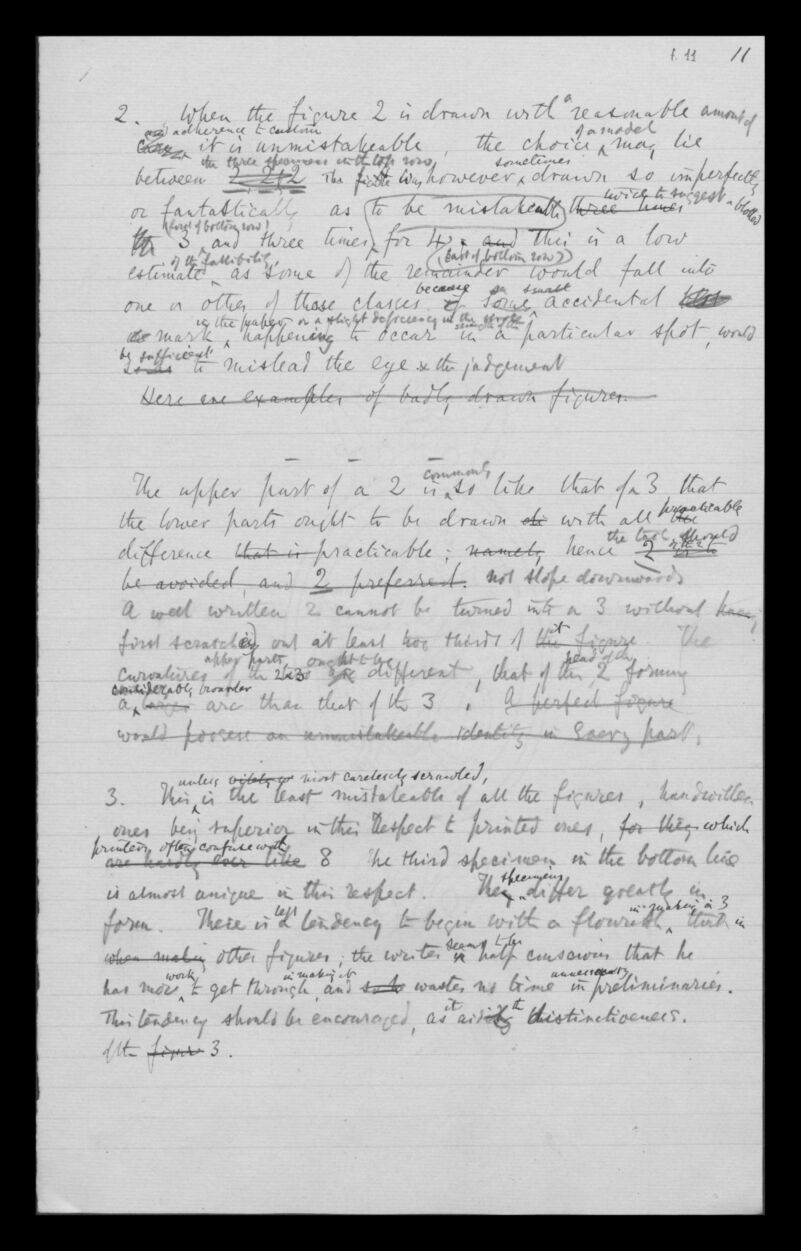 f. 11 11
2. When the figure 2 is drawn with a reasonable amount of
adherence to custom
it is unmistakeable, the choice of a model may lie
the three specimens in the top row,
between 2 2 2 The figure however, sometimes drawn so imperfectly
or fantastically, as to be mistaken three times twice to suggest a blotted
(last of bottom row)
3, and three times for 4. and This is a low
of the fallibility (last of bottom row?)
estimate, as some of the remainder would fall into
one or other of those classes because some small accidental blot
in the paper or a slight deficiency in the stroke
mark, happening to occur in a particular spot, would
be sufficient
to mislead the eye & the judgement
Here are examples of badly drawn figures.
The upper part of a 2 is commonly so like that of a 3 that
the lower parts ought to be drawn with all the practicable
difference that is practicable; namely, hence the tail should
be avoided, and 2 preferred. not slope downwards
A well written 2 cannot be turned into a 3 without
first scratching out at least two thirds of it the figure. The
upper parts, ought to be head of the
curvatures of the 2 & 3 are different, that of the 2 forming
considerably broader
a larger arc than that of the 3. A perfect figure
would possess an unmistakeable identity in every part.
unless most carelessly scrawled,
3. This is the least mistakeable of all the figures, handwritten
ones being superior in this respect to printed ones, for they which
printers often confuse with
are hardly ever like 8 The third specimen in the bottom line
is almost unique in this respect. The specimens differ greatly in
form. There is less tendency to begin with a flourish in making a 3, than in
when making other figures; the writer seems to be is half conscious that he
has more work to get through in making it, and so he wastes no time in unnecessary preliminaries.
This tendency should be encouraged, as it aids the distinctiveness.
of the figure 3.